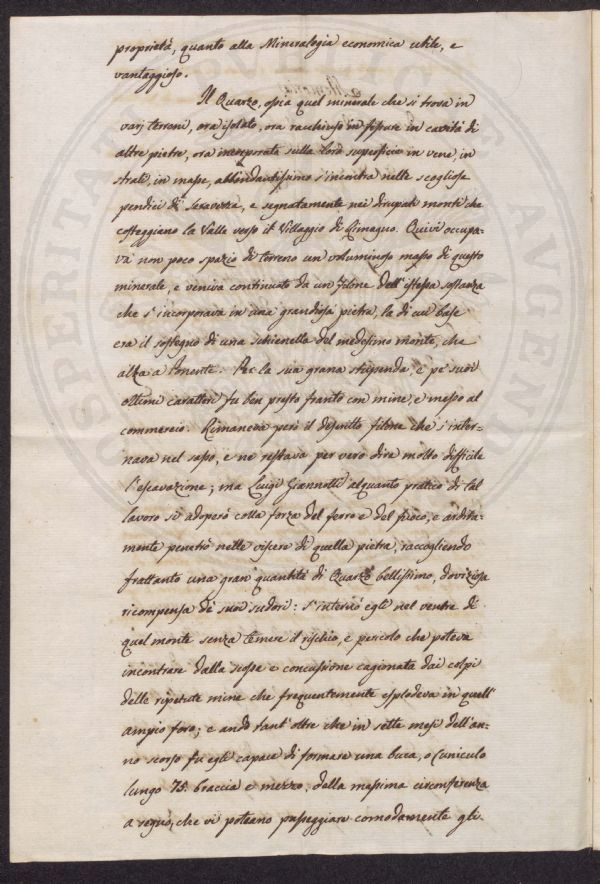 proprietà, quanto alla Mineralogia economica utile, e
vantaggioso.
Il Quarzo, ossia quel minerale che si trova in
varj terreni, ora isolato, ora racchiuso in fissure in cavità di
altre pietre, ora incorporata sulla loro superficie in vene, in
strati, in masse, abbondantissimo s'incontra nelle scogliose
pendici di Seravezza, e segnatamente nei dirupati monti che
costeggiano la Valle verso il Villaggio di Rimagno. Quivi occupa-
va non poco spazio di terreno un voluminoso masso di questo
minerale, e veniva continuato da un Filone dell'istessa sostanza
che s'incorporava in una grandiosa pietra, la di cui base
era il sostegno di una schienella del medesimo monte, che
alza a Ponente. Per la sua grana stupenda, e pe' suoi
ottimi caratteri fu ben presto franto con mine, e messo al
commercio. Rimaneva però il descritto filone che s'inter-
nava nel sasso, e ne restava per vero dire molto difficile
l'escavazione; ma Luigi Giannotti alquanto pratico di tal
lavoro si adoperò colla forza del ferro e del fuoco, e ardita-
mente penetrò nelle viscere di quella pietra, raccogliendo
frattanto una gran quantità di Quarzo bellissimo, doviziosa
ricompensa de' suoi sudori: s'internò egli nel ventre di
quel monte senza temere il rischio, e pericolo che poteva
incontrare dalla scossa e concussione cagionata dai colpi
delle ripetute mine che frequentemente esplodeva in quell'
ampio foro; e andò tant'oltre che in sette mesi dell'an-
no scorso fu egli capace di formare una buca, o Cuniculo
lungo 75 braccia e mezzo, della massima circonferenza
a segno, che vi poteano passeggiare comodamente gli
PUBLIC